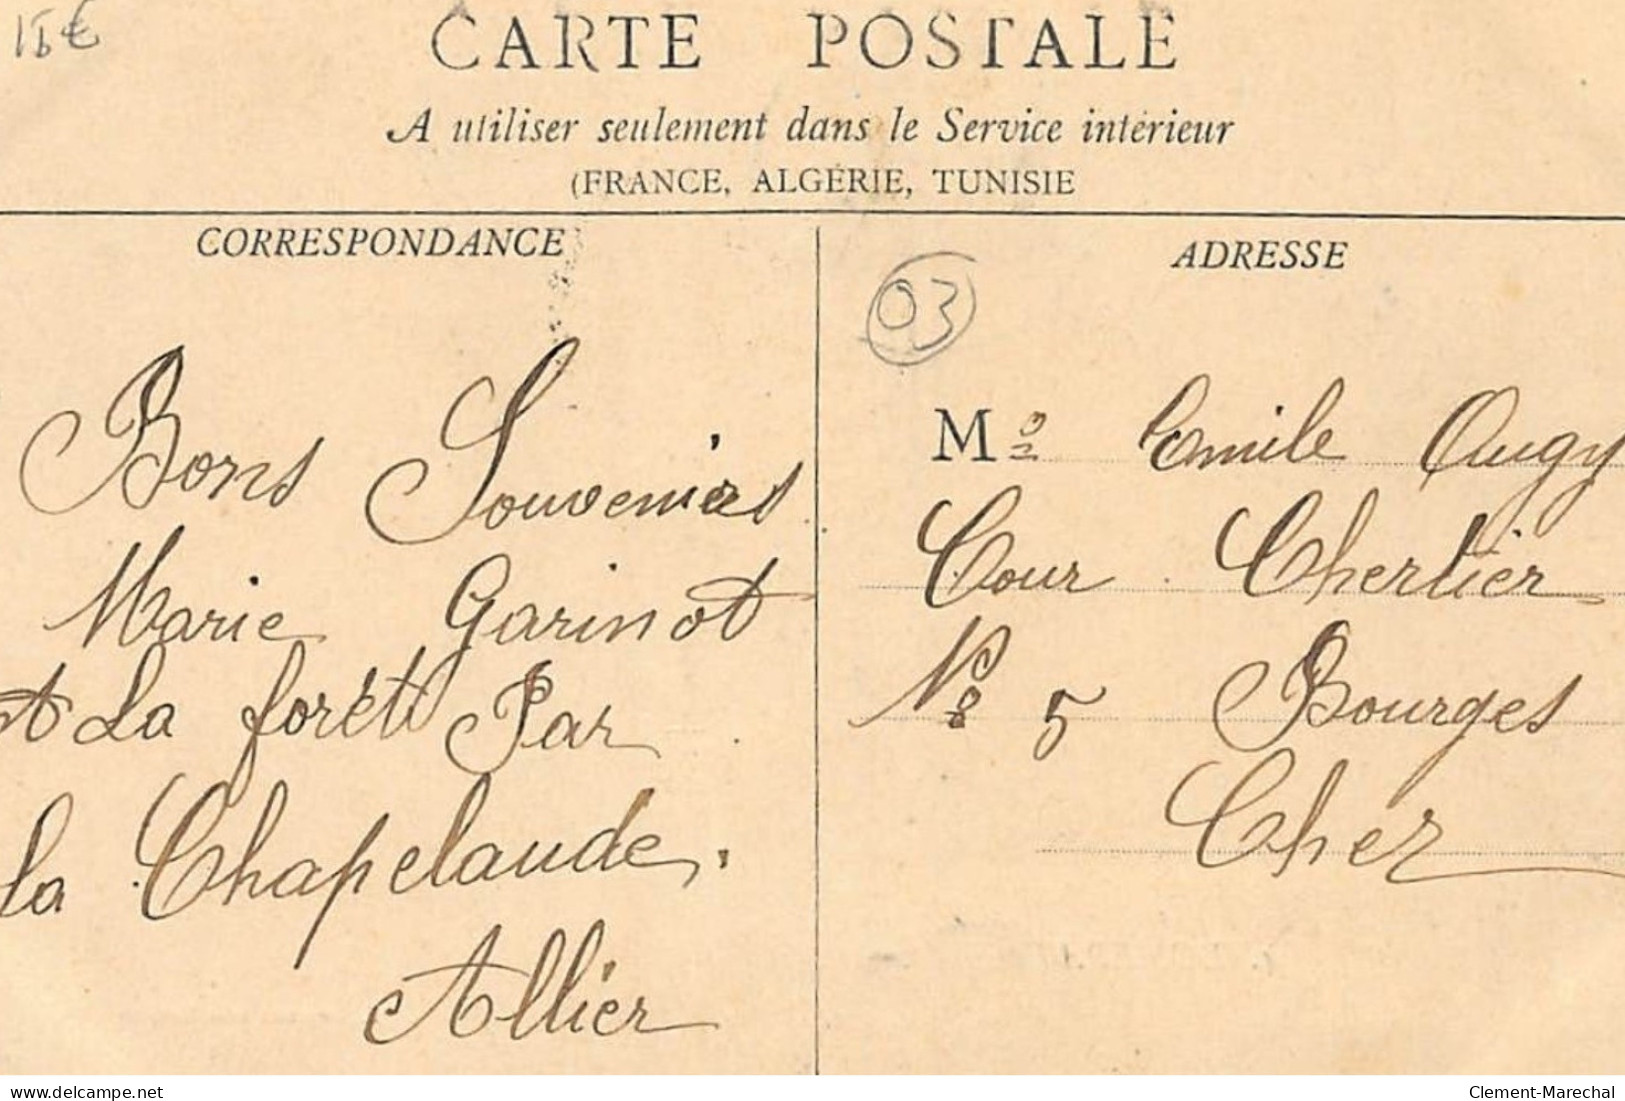 15€
CARTE POSTALE
A utiliser seulement dans le Service intérieur
(FRANCE, ALGÉRIE, TUNISIE
CORRESPONDANCE
Bons Souvenirs
Marie Garinot
A La forêt Par
la Chapelaude.
Allier
ADRESSE
03
Mr Emile Augy
Cour Chertier
No 5 Bourges
Cher
delcampe.net
Clement-Marechal